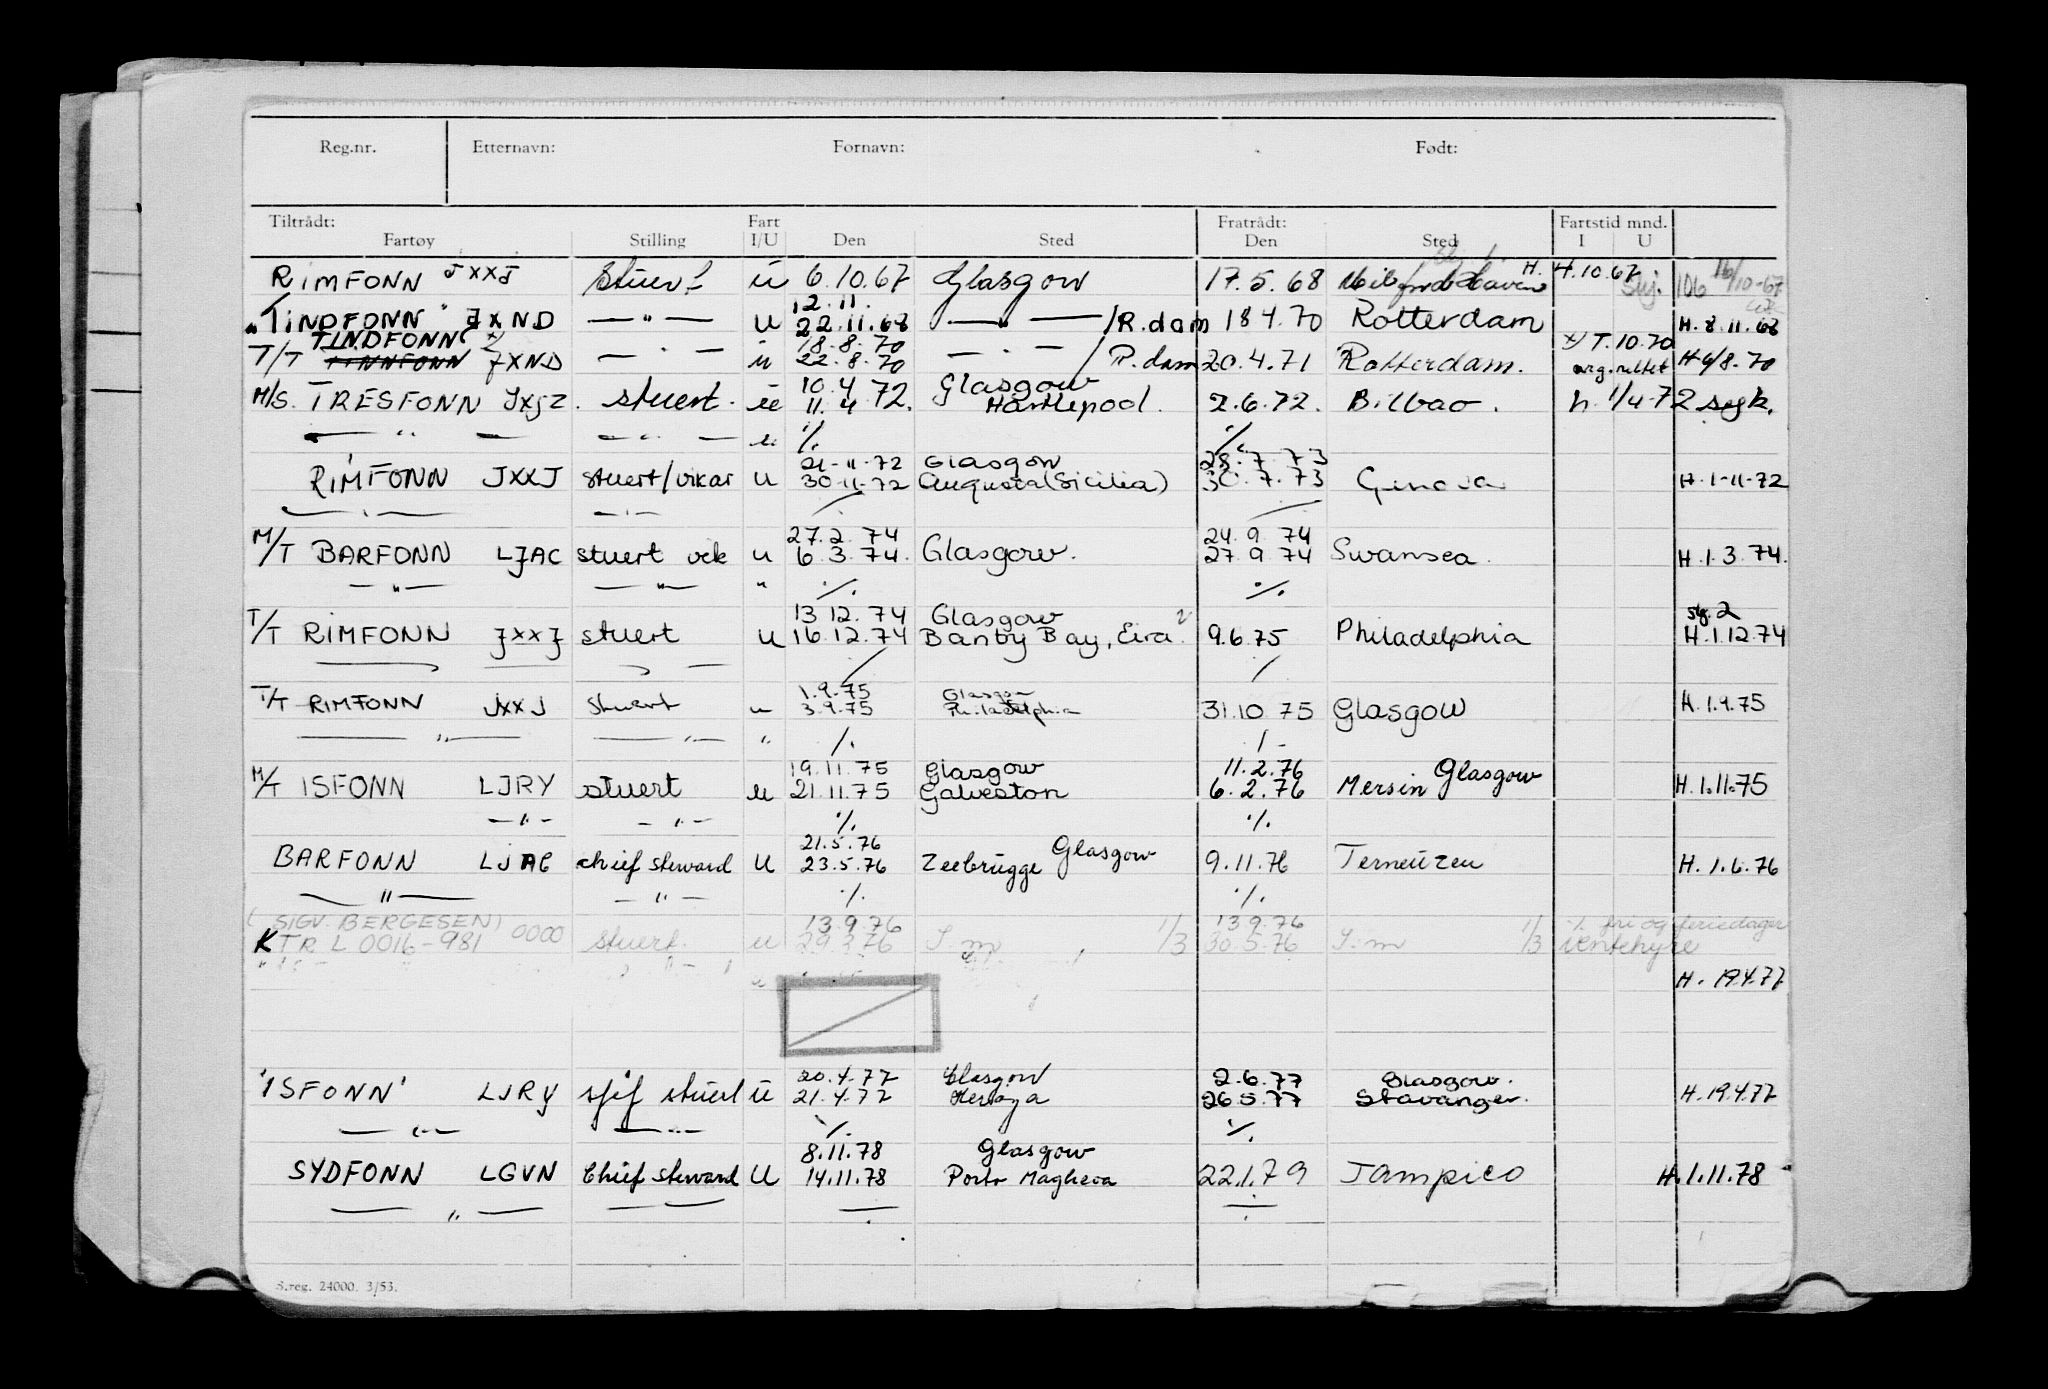 Reg.nr. Etternavn: Fornavn: Født:
Tiltrådt: Fart Fratrådt: Fartstid mnd.
Fartøy Stilling I/U Den Sted Den Sted I U
RIMFONN JXXJ Stuert u 6.10.67 Glasgow 17.5.68 H. 4.10.67 106
12.11.
"TINDFONN" JXND — " — u 22.11.68 — " — /R.dam 18 4.70 Rotterdam H. 8.11.68
TINDFONN x) 18.8.70 x) T.10.70
T/T TINNFONN JXND — " — u 22.8.70 — " — / R.dam 20.4.71 Rotterdam. H 6/8.70
10.4 Glasgow
M/S. TRESFONN JXJZ. stuert. u 11.4 72. Hartlepool. 2.6.72. Bilbao. h. 1/4-72 syk.
— " — — " — u ·/. ·/.
21-11-72 Glasgow 28.7.73
RIMFONN JXXJ stuert/vikar u 30-11-72 Augusta (Sicilia) 30.7.73 Genova H. 1-11-72
— " — — " —
27.2.74 24.9.74
M/T BARFONN LJAC stuert vik u 6.3.74. Glasgow. 27.9 74 Swansea. H.1.3.74.
— " — — " — " ·/. ·/.
13.12.74 Glasgow 2
T/T RIMFONN JXXJ stuert u 16.12.74 Bantry Bay, Eira? 9.6.75 Philadelphia H.1.12.74
1.9.75 Glasgow
T/T RIMFONN JXXJ Stuert u 3.9.75 Philadelphia 31.10.75 Glasgow H.1.9.75
— " — — " — " ·/. ·/.
19.11.75 Glasgow 11.2.76
M/T ISFONN LJRY stuert u 21.11.75 Galveston 6.2.76 Mersin Glasgow H.1.11.75
— " — — " — ·/. ·/.
21.5.76
BARFONN LJAC chief steward U 23.5.76 Zeebrügge Glasgow 9.11.76 Terneuzen H.1.6.76
— " — — " — ·/. ·/.
(SIGV. BERGESEN) 0000 13.9.76 1/3 13.9.76 1/3 ·/. fri og feriedager
KTR L 0016-981 stuert u S.m 76 S.m ventehyre
H. 19.4.77
20.4.77 Glasgow 2.6.77 Glasgow.
'ISFONN' LJRY sjef stuert u 21.4.77 Herøya 26.5.77 Stavanger. H. 19.4.77
— " — — " — ·/. ·/.
8.11.78 Glasgow
SYDFONN LGVN Chief steward U 14.11.78 Porto Maghera 22.1.79 Tampico H.1.11.78
— " —
S.reg. 24000. 3/53.